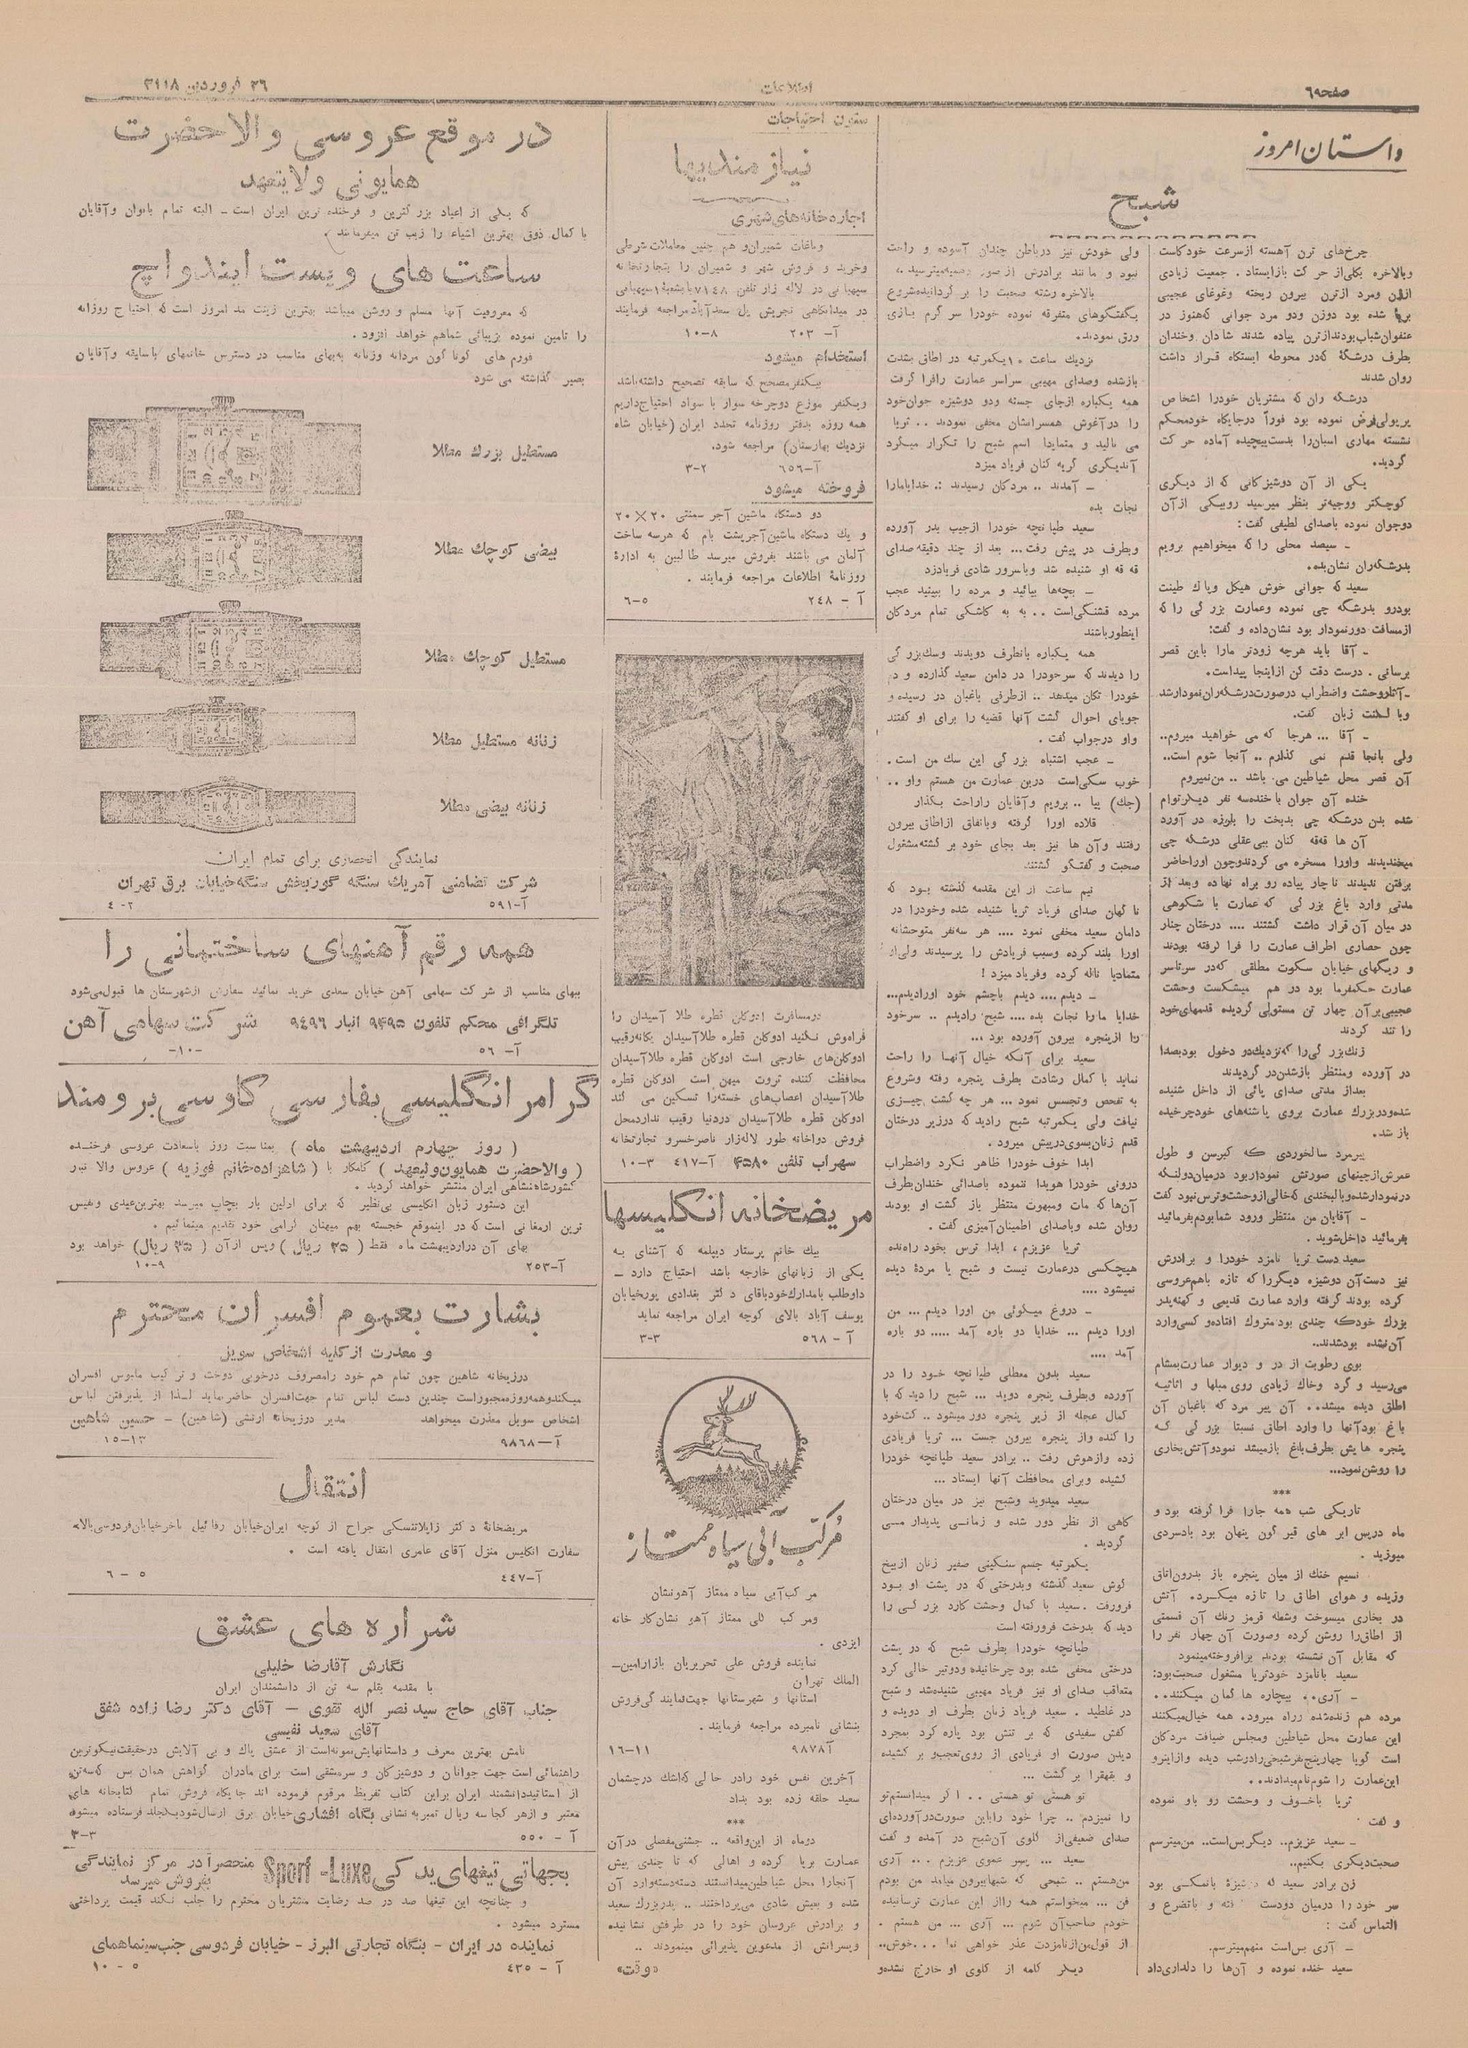 صفحه ۶
اطلاعات
۲۶ فروردین ۱۳۱۸
داستان امروز
شبح
چرخ‌های ترن آهسته از سرعت خود کاست
وبالاخره بکلی از حرکت بازایستاد . جمعیت زیادی
اززن ومرد ازترن بیرون ریخته وغوغای عجیبی
برپا شده بود دوزن ودو مرد جوانی که هنوز در
عنفوان شباب بودند ازترن پیاده شدند شادان وخندان
بطرف درشگهٔ که در محوطه ایستگاه قرار داشت
روان شدند
درشگه ران که مشتریان خودرا اشخاص
پرپولی فرض نموده بود فوراً درجایگاه خود محکم
نشسته مهاری اسبان را بدست پیچیده آماده حرکت
گردید.
یکی از آن دوشیزگانی که از دیگری
کوچکتر ووجیه‌تر بنظر میرسید روبیکی از آن
دوجوان نموده باصدای لطیفی گفت :
ـ سعید محلی را که میخواهیم برویم
بدرشگه‌ران نشان بده.
سعید که جوانی خوش هیکل وپاك طینت
بودرو بدرشگه چی نموده وعمارت بزرگی را که
ازمسافت دور نمودار بود نشان داده و گفت:
ـ آقا باید هرچه زودتر مارا باین قصر
برسانی . درست دقت کن ازاینجا پیداست.
ـ آثار وحشت واضطراب درصورت درشگه‌ران نمودار شد
وبا لکنت زبان گفت.
ـ آقا ... هرجا که می خواهید میروم..
ولی بانجا قدم نمی گذارم .. آنجا شوم است..
آن قصر محل شیاطین می باشد .. من نمیروم
خنده آن جوان باخنده سه نفر دیگر توام
شده بدن درشگه چی بدبخت را بلرزه در آورد
آن ها قهقه کنان ببی عقلی درشگه چی
میخندیدند واورا مسخره می کردند وچون اوراحاضر
برفتن ندیدند ناچار پیاده رو براه نهاده وبعد از
مدتی وارد باغ بزرگی که عمارت با شکوهی
در میان آن قرار داشت گشتند .... درختان چنار
چون حصاری اطراف عمارت را فرا گرفته بودند
و ریگهای خیابان سکوت مطلقی که در سرتاسر
عمارت حکمفرما بود در هم میشکست وحشت
عجیبی برآن چهار تن مستولی گردیده قدمهای خود
را تند کردند
زنگ بزرگی را که نزدیك در دخول بود بصدا
در آورده ومنتظر بازشدن در گردیدند
بعد از مدتی صدای پائی از داخل شنیده
شده ودربزرك عمارت بروی پاشنه‌های خود چرخیده
باز شد.
پیرمرد سالخوردی که کبر سن و طول
عمرش از چینهای صورتش نمودار بود در میان دولنگه
در نمودار شده وبا لبخندی که خالی از وحشت وترس نبود گفت
ـ آقایان من منتظر ورود شما بودم بفرمائید
بفرمائید داخل شوید .
سعید دست ثریا نامزد خودرا و برادرش
نیز دست آن دوشیزه دیگر را که تازه باهم عروسی
کرده بودند گرفته وارد عمارت قدیمی و کهنه پدر
بزرك خود که چندی بود متروك افتاده و کسی وارد
آن نشده بود شدند..
بوی رطوبت از در و دیوار عمارت بمشام
می‌رسید و گرد وخاك زیادی روی مبلها و اثاثیه
اطاق دیده میشد... آن پیر مرد که باغبان آن
باغ بود آنها را وارد اطاق نسبتا بزرگی که
پنجره هایش بطرف باغ باز میشد نمود و آتش بخاری
را روشن نمود...
***
تاریکی شب همه جارا فرا گرفته بود و
ماه درپس ابر های قیر گون پنهان بود بادسردی
میوزید .
نسیم خنك از میان پنجره باز بدرون اتاق
وزیده و هوای اطاق را تازه میکرد. آتش
در بخاری میسوخت وشعله قرمز رنك آن قسمتی
از اطاق را روشن کرده وصورت آن چهار نفر را
که مقابل آن نشسته بودند برافروخته مینمود
سعید بانامزد خود ثریا مشغول صحبت بود:
ـ آری.. بیچاره ها گمان میکنند..
مرده هم زنده شده وراه میرود. همه خیال میکنند
این عمارت محل شیاطین ومجلس ضیافت مردگان
است گویا چهار پنج نفر شبحی را درشب دیده وازاینرو
این عمارت را شوم نام میدادند..
ثریا باخوف و وحشت رو باو نموده
و گفت
ـ سعید عزیزم.. دیگر بس است.. من میترسم
صحبت دیگری بکنیم..
زن برادر سعید که دوشیزهٔ بانمکی بود
سر خود را درمیان دودست گرفته و باتضرع و
التماس گفت :
ـ آری بس است منهم میترسم.
سعید خنده نموده و آن‌ها را دلداری داد
ولی خودش نیز درباطن چندان آسوده و راحت
نبود و مانند برادرش
بالاخره رشته صحبت را بر گردانیده شروع
بگفتگوهای متفرقه نموده خودرا سر گرم بازی
ورق نمودند.
نزدیك ساعت ۱۰ یکمرتبه در اطاق بشدت
بازشده وصدای مهیبی سراسر عمارت رافرا گرفت
همه یکباره ازجای جسته ودو دوشیزه جوان خود
را درآغوش همسرانشان مخفی نمودند .. ثریا
می نالید و متمادیا اسم شبح را تکرار میکرد
آندیگری گریه کنان فریاد میزد
ـ آمدند .. مردگان رسیدند .. خدایا مارا
نجات بده
سعید طپانچه خودرا ازجیب بدر آورده
وبطرف در پیش رفت... بعد از چند دقیقه صدای
قه قه او شنیده شد وباسرور شادی فریاد زد
ـ بچه‌ها بیائید و مرده را ببینید عجب
مرده قشنگی است .. به به کاشکی تمام مردگان
اینطور باشند
همه یکباره بانطرف دویدند وسك بزرگی
را دیدند که سر خودرا در دامن سعید گذارده و دم
خودرا تکان میدهد .. ازطرفی باغبان در رسیده و
جویای احوال گشت آنها قضیه را برای او گفتند
واو درجواب گفت .
ـ عجب اشتباه بزرگی این سك من است .
خوب سکی است دربن عمارت من هستم واو ..
(جك) بیا .. برویم و آقایان راراحت بگذار
قلاده اورا گرفته وباتفاق ازاطاق بیرون
رفتند وآن ها نیز بعد بجای خود بر گشته مشغول
صحبت و گفتگو گشتند
نیم ساعت از این مقدمه گذشته بود که
نا گهان صدای فریاد ثریا شنیده شده وخودرا در
دامان سعید مخفی نمود .... هر سه نفر متوحشانه
اورا بلند کرده وسبب فریادش را پرسیدند ولی او
متمادیا ناله کرده وفریاد میزد !
ـ دیدم .... دیدم باچشم خود اورا دیدم...
خدایا ما را نجات بده .... شبح رادیدم .. سرخود
را ازپنجره بیرون آورده بود ...
سعید برای آنکه خیال آنها را راحت
نماید با کمال رشادت بطرف پنجره رفته وشروع
به تفحص وتجسس نمود ... هر چه گشت چیزی
نیافت ولی یکمرتبه شبح رادید که درزیر درختان
قدم زنان بسوی درپیش میرود .
ابدا خوف خودرا ظاهر نکرد واضطراب
درونی خودرا هویدا ننموده باصدائی خندان بطرف
آن‌ها که مات ومبهوت منتظر باز گشت او بودند
روان شده وباصدای اطمینان آمیزی گفت .
ثریا عزیزم ، ابدا ترس بخود راه نده
هیچکسی درعمارت نیست و شبح یا مردهٔ دیده
نمیشود ....
ـ دروغ میگوئی من اورا دیدم ... من
اورا دیدم ... خدایا دو باره آمد ..... دو باره
آمد ....
سعید بدون معطلی طپانچه خود را در
آورده وبطرف پنجره دوید ... شبح را دید که با
کمال عجله از زیر پنجره دور میشود .. کت خود
را کنده واز پنجره بیرون جست ... ثریا فریادی
زده وازهوش رفت .. برادر سعید طپانچه خودرا
کشیده وبرای محافظت آنها ایستاد ...
سعید میدوید وشبح نیز در میان درختان
گاهی از نظر دور شده و زمانی پدیدار می
گردید .
یکمرتبه جسم سنگینی صفیر زنان ازبیخ
گوش سعید گذشته وبدرختی که در پشت او بود
فرورفت . سعید با کمال وحشت کارد بزرگی را
دید که بدرخت فرورفته است
طپانچه خودرا بطرف شبح که در پشت
درختی مخفی شده بود چرخانیده ودوتیر خالی کرد
متعاقب صدای او نیز فریاد مهیبی شنیده شد و شبح
در غلطید . سعید فریاد زنان بطرف او دویده و
کفش سفیدی که بر تنش بود پاره کرد بمجرد
دیدن صورت او فریادی از روی تعجب بر کشیده
و بقهقرا بر گشت ...
تو هستی تو هستی .. اگر میدانستم تو
را نمیزدم .. چرا خود راباین صورت در آورده‌ای
صدای ضعیفی از گلوی آن شبح در آمده و گفت
سعید ... پسر عموی عزیزم ... آری
من هستم .. شبحی که شبها بیرون میامد من بودم
فن ... میخواستم همه رااز این عمارت ترسانیده
خودم صاحب آن شوم ... آری ... من هستم .
از قول من از نامزدت عذر خواهی نما ... خوش..
دیگر کلمه از گلوی او خارج نشده و
ستون احتیاجات
نیازمندیها
اجاره خانه‌های شهری
وباغات شمیران وهم چنین معاملات شرطی
وخرید و فروش شهر و شمیران را بتجارتخانه
سپهبانی در لاله زار تلفن ۷۱۴۸ یا بشعبهٔ سپهبانی
در میدانگاهی تجریش پل سعد آباد مراجعه فرمایند
آ- ۲۰۳ ۱۰-۸
استخدام میشود
یکنفر مصحح که سابقه تصحیح داشته باشد
ویکنفر موزع دوچرخه سوار با سواد احتیاج داریم
همه روزه بدفتر روزنامه تجدد ایران (خیابان شاه
نزدیك بهارستان) مراجعه شود.
آ-۶۵۶ ۳-۲
فروخته میشود
دو دستگاه ماشین آجر سمنتی ۲۰×۲۰
و یك دستگاه ماشین آجر پشت بام که هرسه ساخت
آلمان می باشند بفروش میرسد طالبین به ادارهٔ
روزنامهٔ اطلاعات مراجعه فرمایند .
آ - ۲۴۸ ۶-۵
درمسافرت ادوکلن قطره طلا آسیدان را
فراموش نکنید ادوکلن قطره طلاآسیدان یگانه رقیب
ادوکلن‌های خارجی است ادوکلن قطره طلاآسیدان
محافظت کننده ثروت میهن است ادوکلن قطره
طلاآسیدان اعصاب‌های خسته را تسکین می کند
ادوکلن قطره طلاآسیدان دردنیا رقیب ندارد محل
فروش دواخانه طور لاله‌زار ناصرخسرو تجارتخانه
سهراب تلفن ۴۵۸۰ آ-۴۱۷ ۱۰-۳
مریضخانه انگلیسها
بیك خانم پرستار دیپلمه که آشنای به
یکی از زبانهای خارجه باشد احتیاج دارد -
داوطلب بامدارك خود باقای دکتر بغدادی پور خیابان
یوسف آباد بالای کوچه ایران مراجعه نماید
آ - ۵۶۸ ۳-۳
مرکب آبی سیاه ممتاز
مرکب آبی سیاه ممتاز آهونشان
ومرکب گلی ممتاز آهو نشان کار خانه
ایزدی .
نماینده فروش علی تحریریان بازار امین-
الملك تهران
استانها و شهرستانها جهت نمایندگی فروش
بنشانی نامبرده مراجعه فرمایند .
۹۸۷۸آ ۱۶-۱۱
آخرین نفس خود رادر حالی که اشك درچشمان
سعید حلقه زده بود بداد
***
درماه از این واقعه .. جشن مفصلی در آن
عمارت برپا کرده و اهالی که تا چندی پیش
آنجارا محل شیاطین میدانستند دسته دسته وارد آن
شده و بعیش شادی می‌پرداختند .. پدر بزرك سعید
و برادرش عروسان خود را در طرفش نشانیده
وپسرانش از مدعوین پذیرائی مینمودند ..
«وقت»
در موقع عروسی والاحضرت
همایونی ولایتعهد
که یکی از اعیاد بزرگترین و فرخنده ترین ایران است - البته تمام بانوان و آقایان
با کمال ذوق بهترین اشیاء را زیب تن میفرمایند .
ساعت های ویست ایندواچ
که معروفیت آنها مسلم و روشن میباشد بهترین زینت مد امروز است که احتیاج روزانه
را تامین نموده بزیبائی شماهم خواهد افزود .
فورم های گوناگون مردانه وزنانه به بهای مناسب در دسترس خانمهای باسلیقه و آقایان
بصیر گذاشته می شود
مستطیل بزرك مطلا
بیضی کوچك مطلا
مستطیل کوچك مطلا
زنانه مستطیل مطلا
زنانه بیضی مطلا
نمایندگی انحصاری برای تمام ایران
شرکت تضامنی آمریك سنگه گوربخش سنگه خیابان برق تهران
آ-۵۹۱ ۴-۲
همه رقم آهنهای ساختمانی را
ببهای مناسب از شرکت سهامی آهن خیابان سعدی خرید نمائید سفارش ازشهرستان ها قبول می‌شود
تلگرافی محکم تلفون ۹۴۹۵ انبار ۹۴۹۶ شرکت سهامی آهن
آ- ۵۶ -۱۰-
گرامر انگلیسی بفارسی کاوسی برومند
( روز چهارم اردیبهشت ماه ) بمناسبت روز باسعادت عروسی فرخنده
(والاحضرت همایون ولیعهد ) کامکار با ( شاهزاده خانم فوزیه ) عروس والا تبار
کشور شاهنشاهی ایران منتشر خواهد گردید .
این دستور زبان انگلیسی بی‌نظیر که برای اولین بار بچاپ میرسد بهترین عیدی ونفیس
ترین ارمغانی است که در اینموقع خجسته بهم میهنان گرامی خود تقدیم مینمائیم .
بهای آن دراردیبهشت ماه فقط ( ۲۵ ریال ) وپس ازآن ( ۳۵ ریال) خواهد بود
آ-۲۵۳ ۱۰-۹
بشارت بعموم افسران محترم
و معذرت از کلیه اشخاص سویل
درزیخانه شاهین چون تمام هم خود رامصروف درخوبی دوخت و ترکیب ملبوس افسران
میکند وهمه روزه مجبور است چندین دست لباس تمام جهت افسران حاضر نماید لهذا از پذیرفتن لباس
اشخاص سویل معذرت میخواهد مدیر درزیخانه ارتشی (شاهین) - حسین شاهین
آ—۹۸۶۸ ۱۵-۱۳
انتقال
مریضخانهٔ دکتر ژابلاتنسکی جراح از کوچه ایران خیابان رفائیل باخر خیابان فردوسی بالای
سفارت انگلیس منزل آقای عامری انتقال یافته است .
آ-۴۴۷ ۶ - ۵
شراره های عشق
نگارش آقارضا خلیلی
با مقدمه بقلم سه تن از دانشمندان ایران
جناب آقای حاج سید نصر الله تقوی - آقای دکتر رضا زاده شفق
آقای سعید نفیسی
نامش بهترین معرف و داستانهایش نمونه است از عشق پاك و بی آلایش درحقیقت نیکوترین
راهنمائی است جهت جوانان و دوشیزگان و سرمشقی است برای مادران گواهش همان بس که سه تن
از اساتید دانشمند ایران براین کتاب تقریظ مرقوم فرموده اند جایگاه فروش تمام کتابخانه های
معتبر و ازهر کجا سه ریال تمبر به نشانی بنگاه افشاری خیابان برق ارسال شود یکجلد فرستاده میشود
آ - ۵۵۰ ۳-۳
بجهاتی تیغهای یدکی Sport-Luxe منحصراً در مرکز نمایندگی
بفروش میرسد
و چنانچه این تیغها صد در صد رضایت مشتریان محترم را جلب نکند قیمت پرداختی
مسترد میشود .
نماینده در ایران - بنگاه تجارتی البرز - خیابان فردوسی جنب سینماهمای
آ - ۴۳۵ ۱۰ - ۵